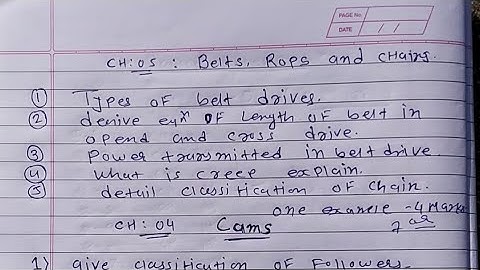 PAGE No.:
DATE / /
CH:05 : Belts, Rops and CHains.
① Types oF belt drives.
② derive eqⁿ OF Length oF belt in
opend and cross drive.
③ Power transmitted in belt drive.
④ what is creep explain.
⑤ detail classification of chain.
one examle -4 Marks
7
CH: 04 Cams
1) give classification of Followers.